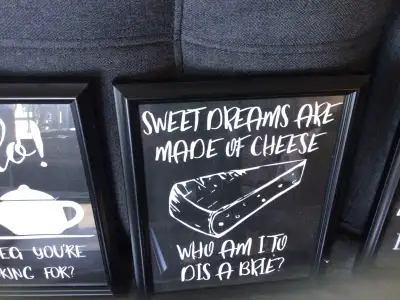 lo!
TEA YOU'RE
KING FOR?
SWEET DREAMS ARE
MADE OF CHEESE
WHO AM I TO
DIS A BRIE?